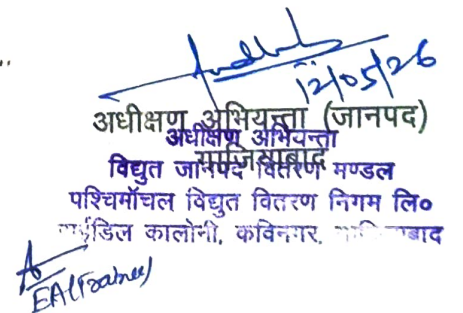 12/05/26
अधीक्षण अभियन्ता (जानपद)
अधीक्षण अभियन्ता
गाजियाबाद
विद्युत जानपद वितरण मण्डल
पश्चिमॉचल विद्युत वितरण निगम लि०
कालोनी, कविनगर,
EA(Trainee)